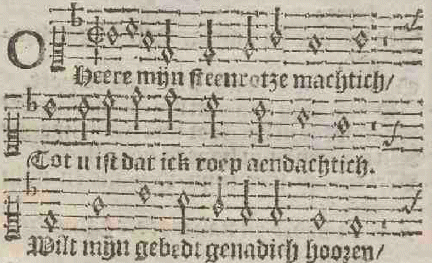 O
Heere mijn steenrotze machtich/
Tot u ist dat ick roep aendachtich.
Wilt mijn gebedt genadich hooren/